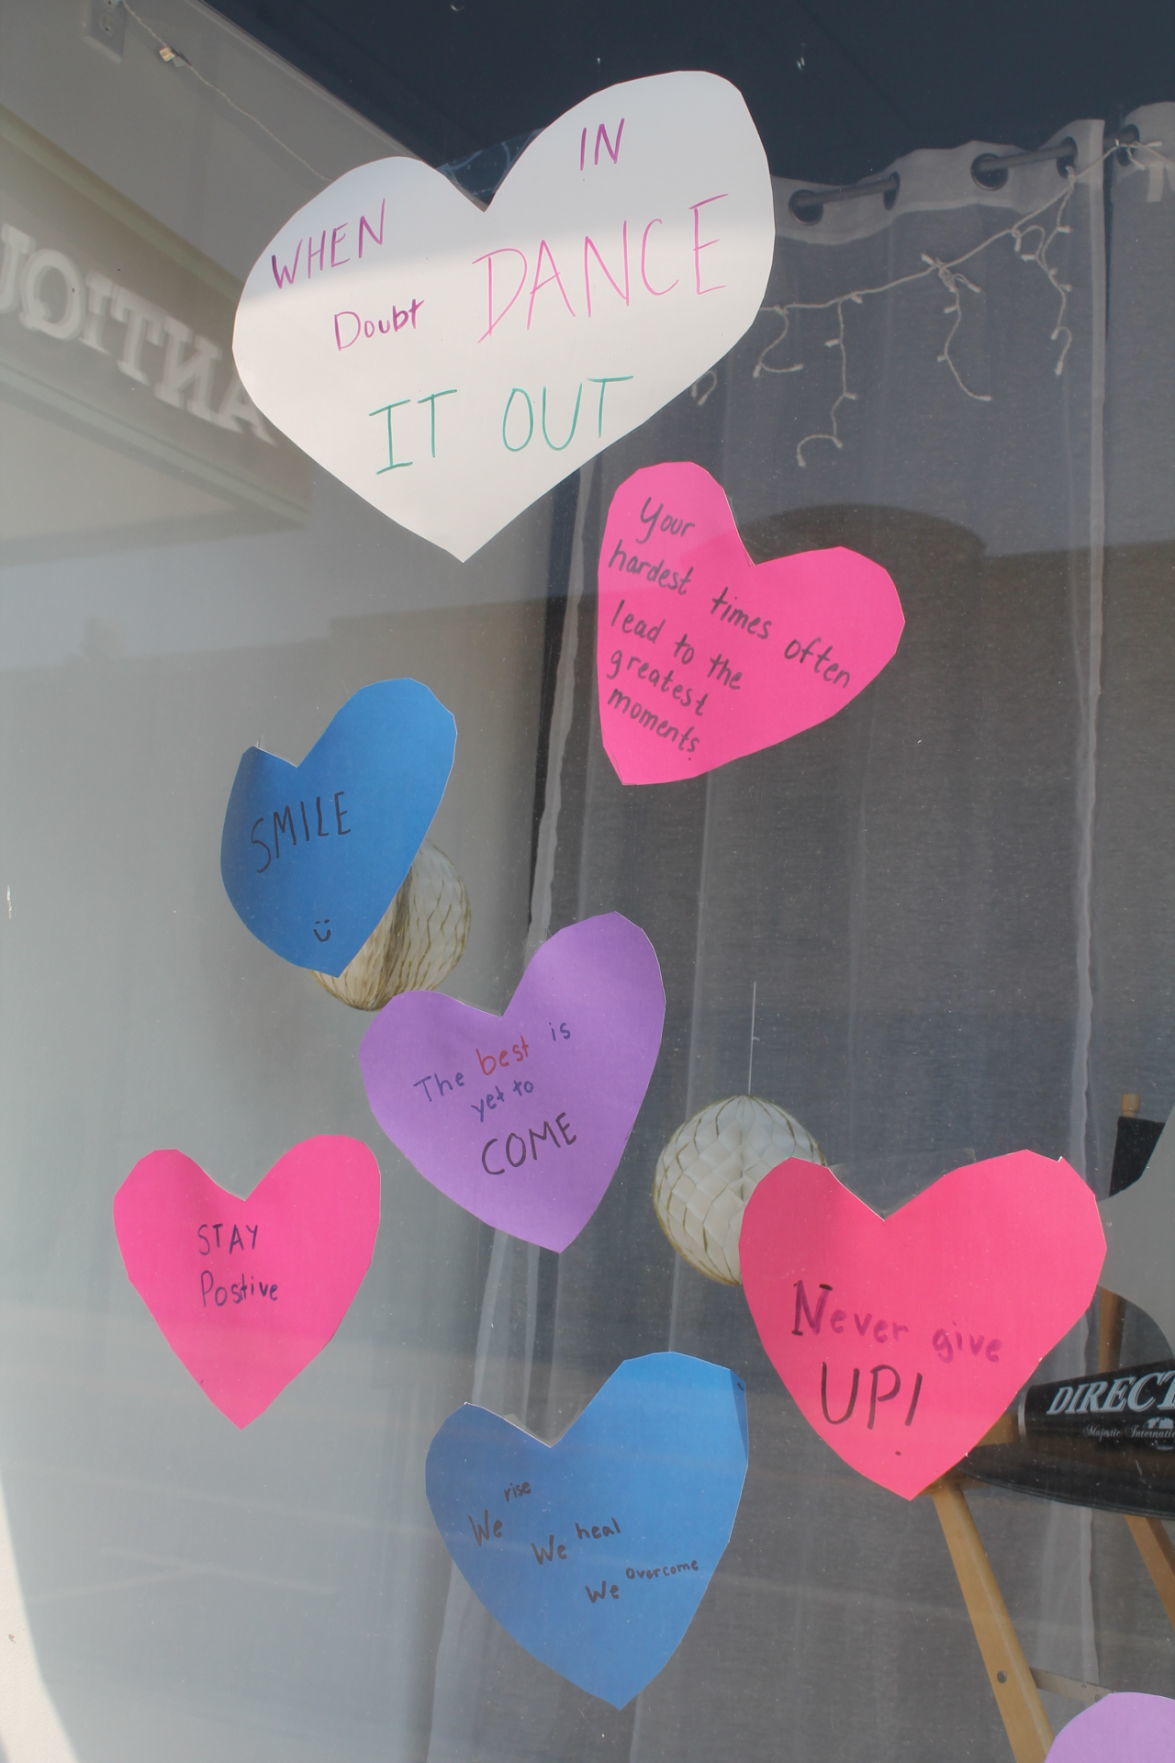 WHEN IN
Doubt DANCE
IT OUT
Your
hardest times often
lead to the
greatest
moments.
SMILE
The best is
yet to
COME
STAY
Postive
Never give
UP!
We rise
We heal
We overcome
DIRECT
Majestic